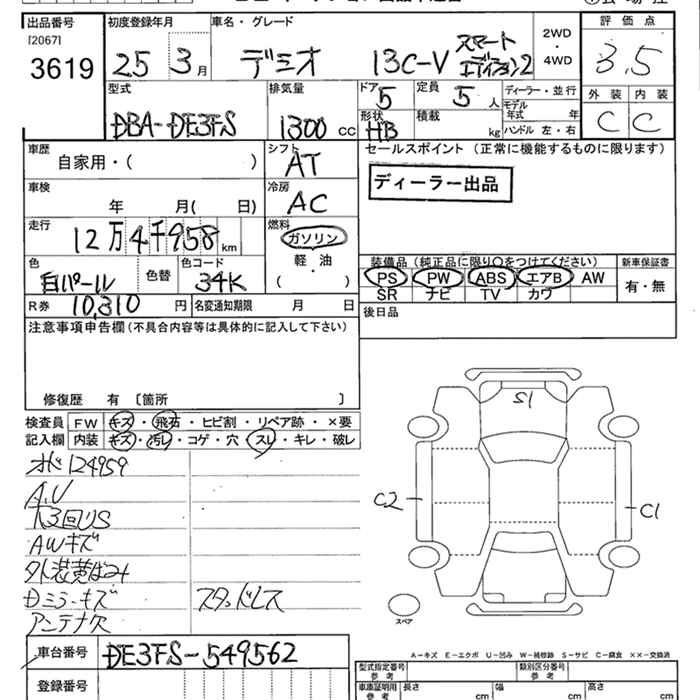 出品番号 初度登録年月 車名・グレード 評価点
[2067]
3619 25 3月 デミオ 13C-V スマートエディション2 2WD・4WD 3.5
型式 排気量 ドア 5 定員 5人 ディーラー・並行 外装 内装
モデル年式 年
DBA-DE3FS 1300cc 形状 HB 積載 kg ハンドル 左・右 C C
車歴 シフト セールスポイント (正常に機能するものに限ります)
自家用・( ) AT
ディーラー出品
車検 冷房
年 月( 日) AC
走行 燃料
12万4千958km ガソリン
軽・油
( )
装備品(純正品に限り○をつけてください) 新車保証書
色 色替 色コード PS PW ABS エアB AW 有・無
白パール 34K SR ナビ TV カワ
R券 10,310円 名変通知期限 月 日 後日品
注意事項申告欄(不具合内容等は具体的に記入して下さい)
修復歴 有 〔箇所 〕
検査員 FW キズ・飛石・ヒビ割・リペア跡・×要
記入欄 内装 キズ・汚レ・コゲ・穴・スレ・キレ・破レ
S1
124959
C2 C1
AWキズ
Dミラーキズ スタッドレス
アンテナ欠
スペア
車台番号 DE3FS-549562
A-キズ E-エクボ U-凹み W-補修跡 S-サビ C-腐食 ××-交換済
登録番号 型式指定番号 参考 類別区分番号 参考
車庫証明用 参考 長さ cm 幅 cm 高さ cm